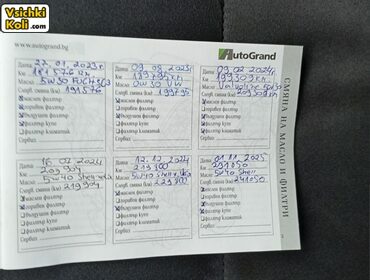 Vsichki
Koli.com
www.autogrand.bg
AutoGrand
СМЯНА НА МАСЛО И ФИЛТРИ
Дата: 22.01.2023г.
Км: 181576 км
Масло: 5W30
Следв. смяна (км) 191576
маслен филтър
горивен филтър
въздушен филтър
филтър купе
филтър климатик
Сервиз
Дата: 09.08.2023г.
Масло: 0W30
Следв. смяна (км) 199795
маслен филтър
горивен филтър
въздушен филтър
филтър купе
филтър климатик
Сервиз
Дата: 09.02.2024г.
Км: 199309км.
Масло: Valvoline 5W30
Следв. смяна (км) 209309км
маслен филтър
горивен филтър
въздушен филтър
филтър купе
филтър климатик
Сервиз
Дата: 16.07.2024
Км: 209904
Масло: 5W40 Shell
Следв. смяна (км) 219904
маслен филтър
горивен филтър
въздушен филтър
филтър купе
филтър климатик
Сервиз
Дата: 12.12.2024
Масло: 5W40 Shell
Следв. смяна (км) 229800
маслен филтър
горивен филтър
въздушен филтър
филтър купе
филтър климатик
Сервиз
Дата: 01.11.2025
Км: 231050
Масло: 5W40 Shell
Следв. смяна (км) 241050
маслен филтър
горивен филтър
въздушен филтър
филтър купе
филтър климатик
Сервиз